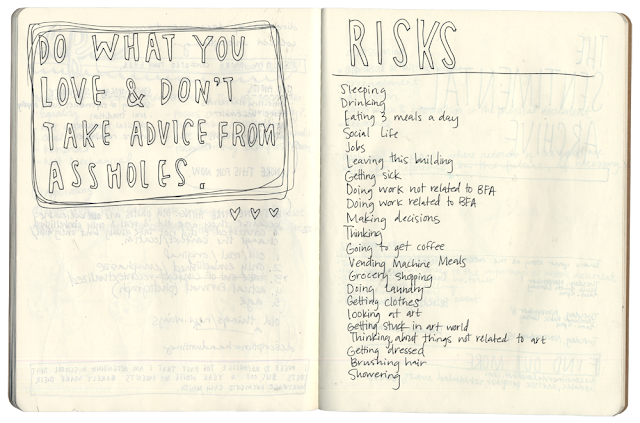 DO WHAT YOU
LOVE & DON'T
TAKE ADVICE FROM
ASSHOLES.
RISKS
Sleeping
Drinking
Eating 3 meals a day
Social Life
Jobs
Leaving this building
Getting sick
Doing work not related to BFA
Doing work related to BFA
Making decisions
Thinking
Going to get coffee
Vending Machine Meals
Grocery shopping
Doing laundry
Getting clothes
looking at art
Getting stuck in art world
Thinking about things not related to art
Getting dressed
Brushing hair
Showering